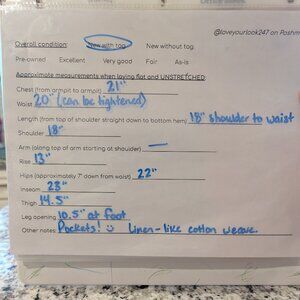 @loveyourlook247 on Poshm
Overall condition: New with tag New without tag
Pre-owned Excellent Very good Fair As-is
Approximate measurements when laying flat and UNSTRETCHED:
Chest (from armpit to armpit) 21"
Waist 20" (can be tightened)
Length (from top of shoulder straight down to bottom hem) 18" shoulder to waist
Shoulder 18"
Arm (along top of arm starting at shoulder) —
Rise 13"
Hips (approximately 7" down from waist) 22"
Inseam 23"
Thigh 14.5"
Leg opening 10.5" at foot
Other notes: Pockets! ☺ Linen-like cotton weave.